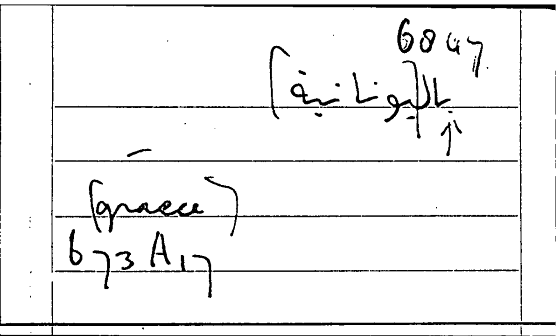 6847
(باليونانية)
↑
(graece)
673 A 17